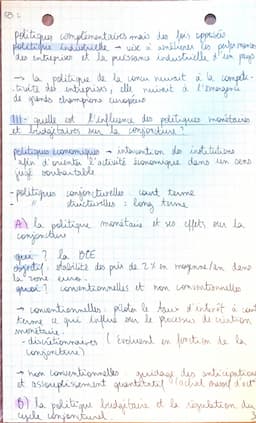 politiques complémentaires mais des fois opposées
politique industrielle → vise à améliorer les performances
des entreprises et la puissance industrielle d'un pays
→ la politique de la concu nuirait à la compéti-
tivité des entreprises, elle nuirait à l'émergence
de grands champions européens
III - quelle est l'influence des politiques monétaires
et budgétaires sur la conjoncture ?
politiques économiques → intervention des institutions
afin d'orienter l'activité économique dans un sens
jugé souhaitable
- politiques conjoncturelles court terme
- " structurelles : long terme
A) la politique monétaire et ses effets sur la
conjoncture
qui ? la BCE
objectif : stabilité des prix de 2% en moyenne/an dans
la zone euro
quoi ? conventionnelles et non conventionnelles
→ conventionnelles : piloter le taux d'intérêt à court
terme ce qui influe sur le processus de création
monétaire.
- discrétionnaires (évoluent en fonction de la
conjoncture)
→ non conventionnelles guidage des anticipations
et assouplissement quantitatif (achat massif d'
B) la politique budgétaire et la régulation du
cycle conjoncturel
3